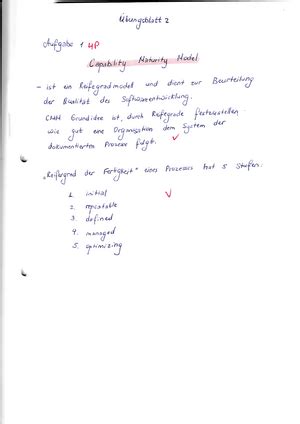 Übungsblatt 2
Aufgabe 1 4P
Capability Maturity Model
- ist ein Reifegradmodell und dient zur Beurteilung
der Qualität des Softwareentwicklung.
CMM Grundidee ist, durch Reifegrade festzustellen
wie gut eine Organisation dem System der
dokumentierten Prozesse folgt.
"Reifegrad der Fertigkeit" eines Prozesses hat 5 Stufen:
1. initial
2. repeatable
3. defined
4. managed
5. optimizing